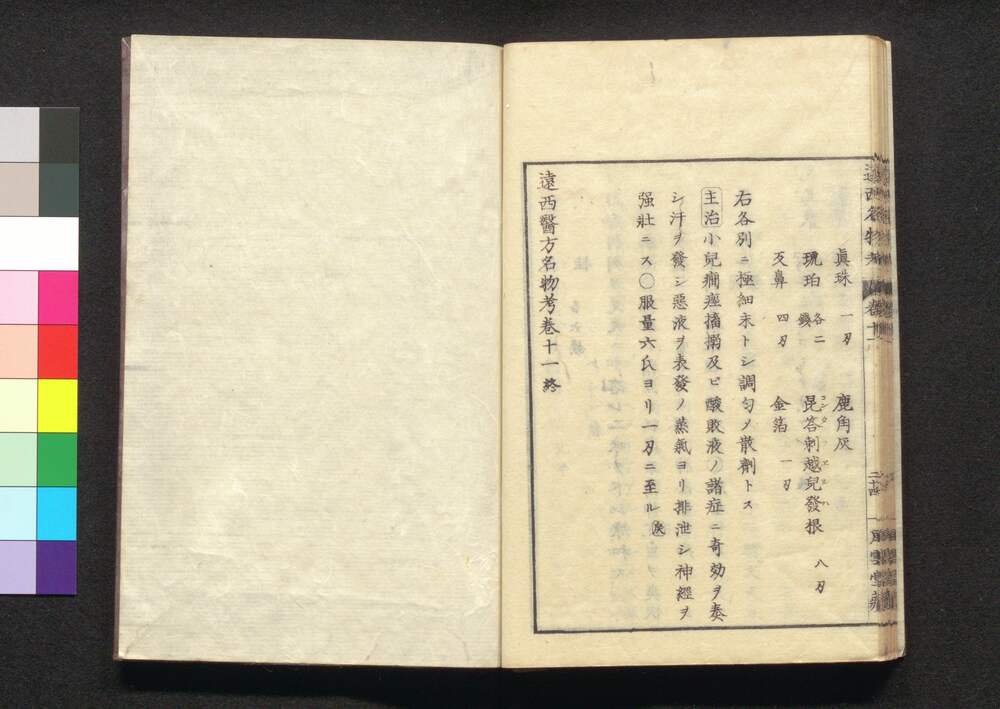 遠西名物考 卷十一
眞珠 一刄 鹿角灰
琥珀 各二錢 昆答刺越兒發根 八刄
芰鼻 四刄 金箔 一刄
右各別ニ極細末トシ調匀ノ散劑トス
主治 小兒癇痙搐搦及ビ酸敗液ノ諸症ニ奇効ヲ奏
シ汗ヲ發シ惡液ヲ表發ノ蒸氣ヨリ排泄シ神經ヲ
强壯ニス○服量六氏ヨリ一刄ニ至ル
遠西醫方名物考卷十一終